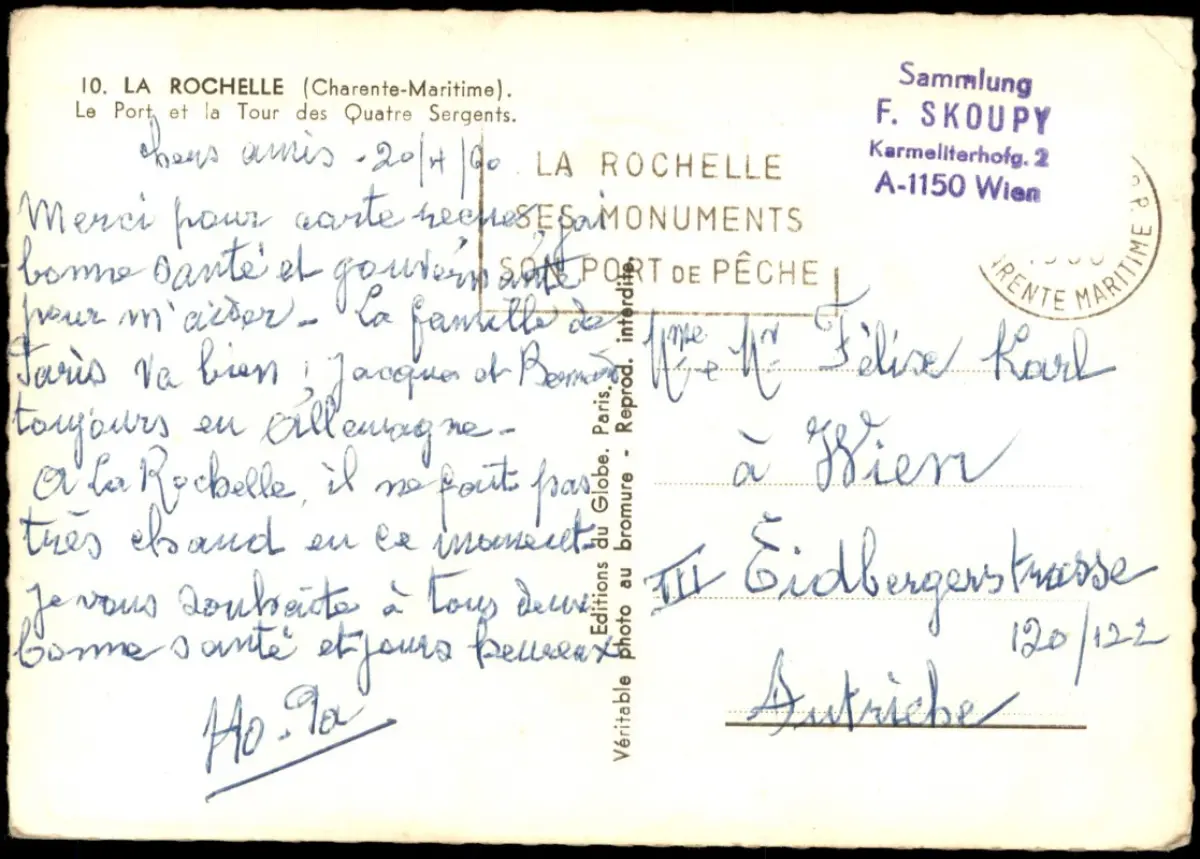 10. LA ROCHELLE (Charente-Maritime).
Le Port et la Tour des Quatre Sergents.
chers amis - 20/4/60
Merci pour carte reçue, j'ai
bonne santé et
pour m'aider - La famille de
Paris va bien ; Jacques et Bernard
toujours en Allemagne -
A La Rochelle, il ne fait pas
très chaud en ce moment -
je vous souhaite à tous deux
bonne santé et jours heureux
Ho-
LA ROCHELLE
SES MONUMENTS
SON PORT DE PÊCHE
Sammlung
F. SKOUPY
Karmeliterhofg. 2
A-1150 Wien
RENTE MARITIME
Editions du Globe. Paris.
Véritable photo au bromure - Reprod. interdite.
Mme e Mr Félix Karl
à Wien
III Eidbergerstrasse
120/122
Autriche